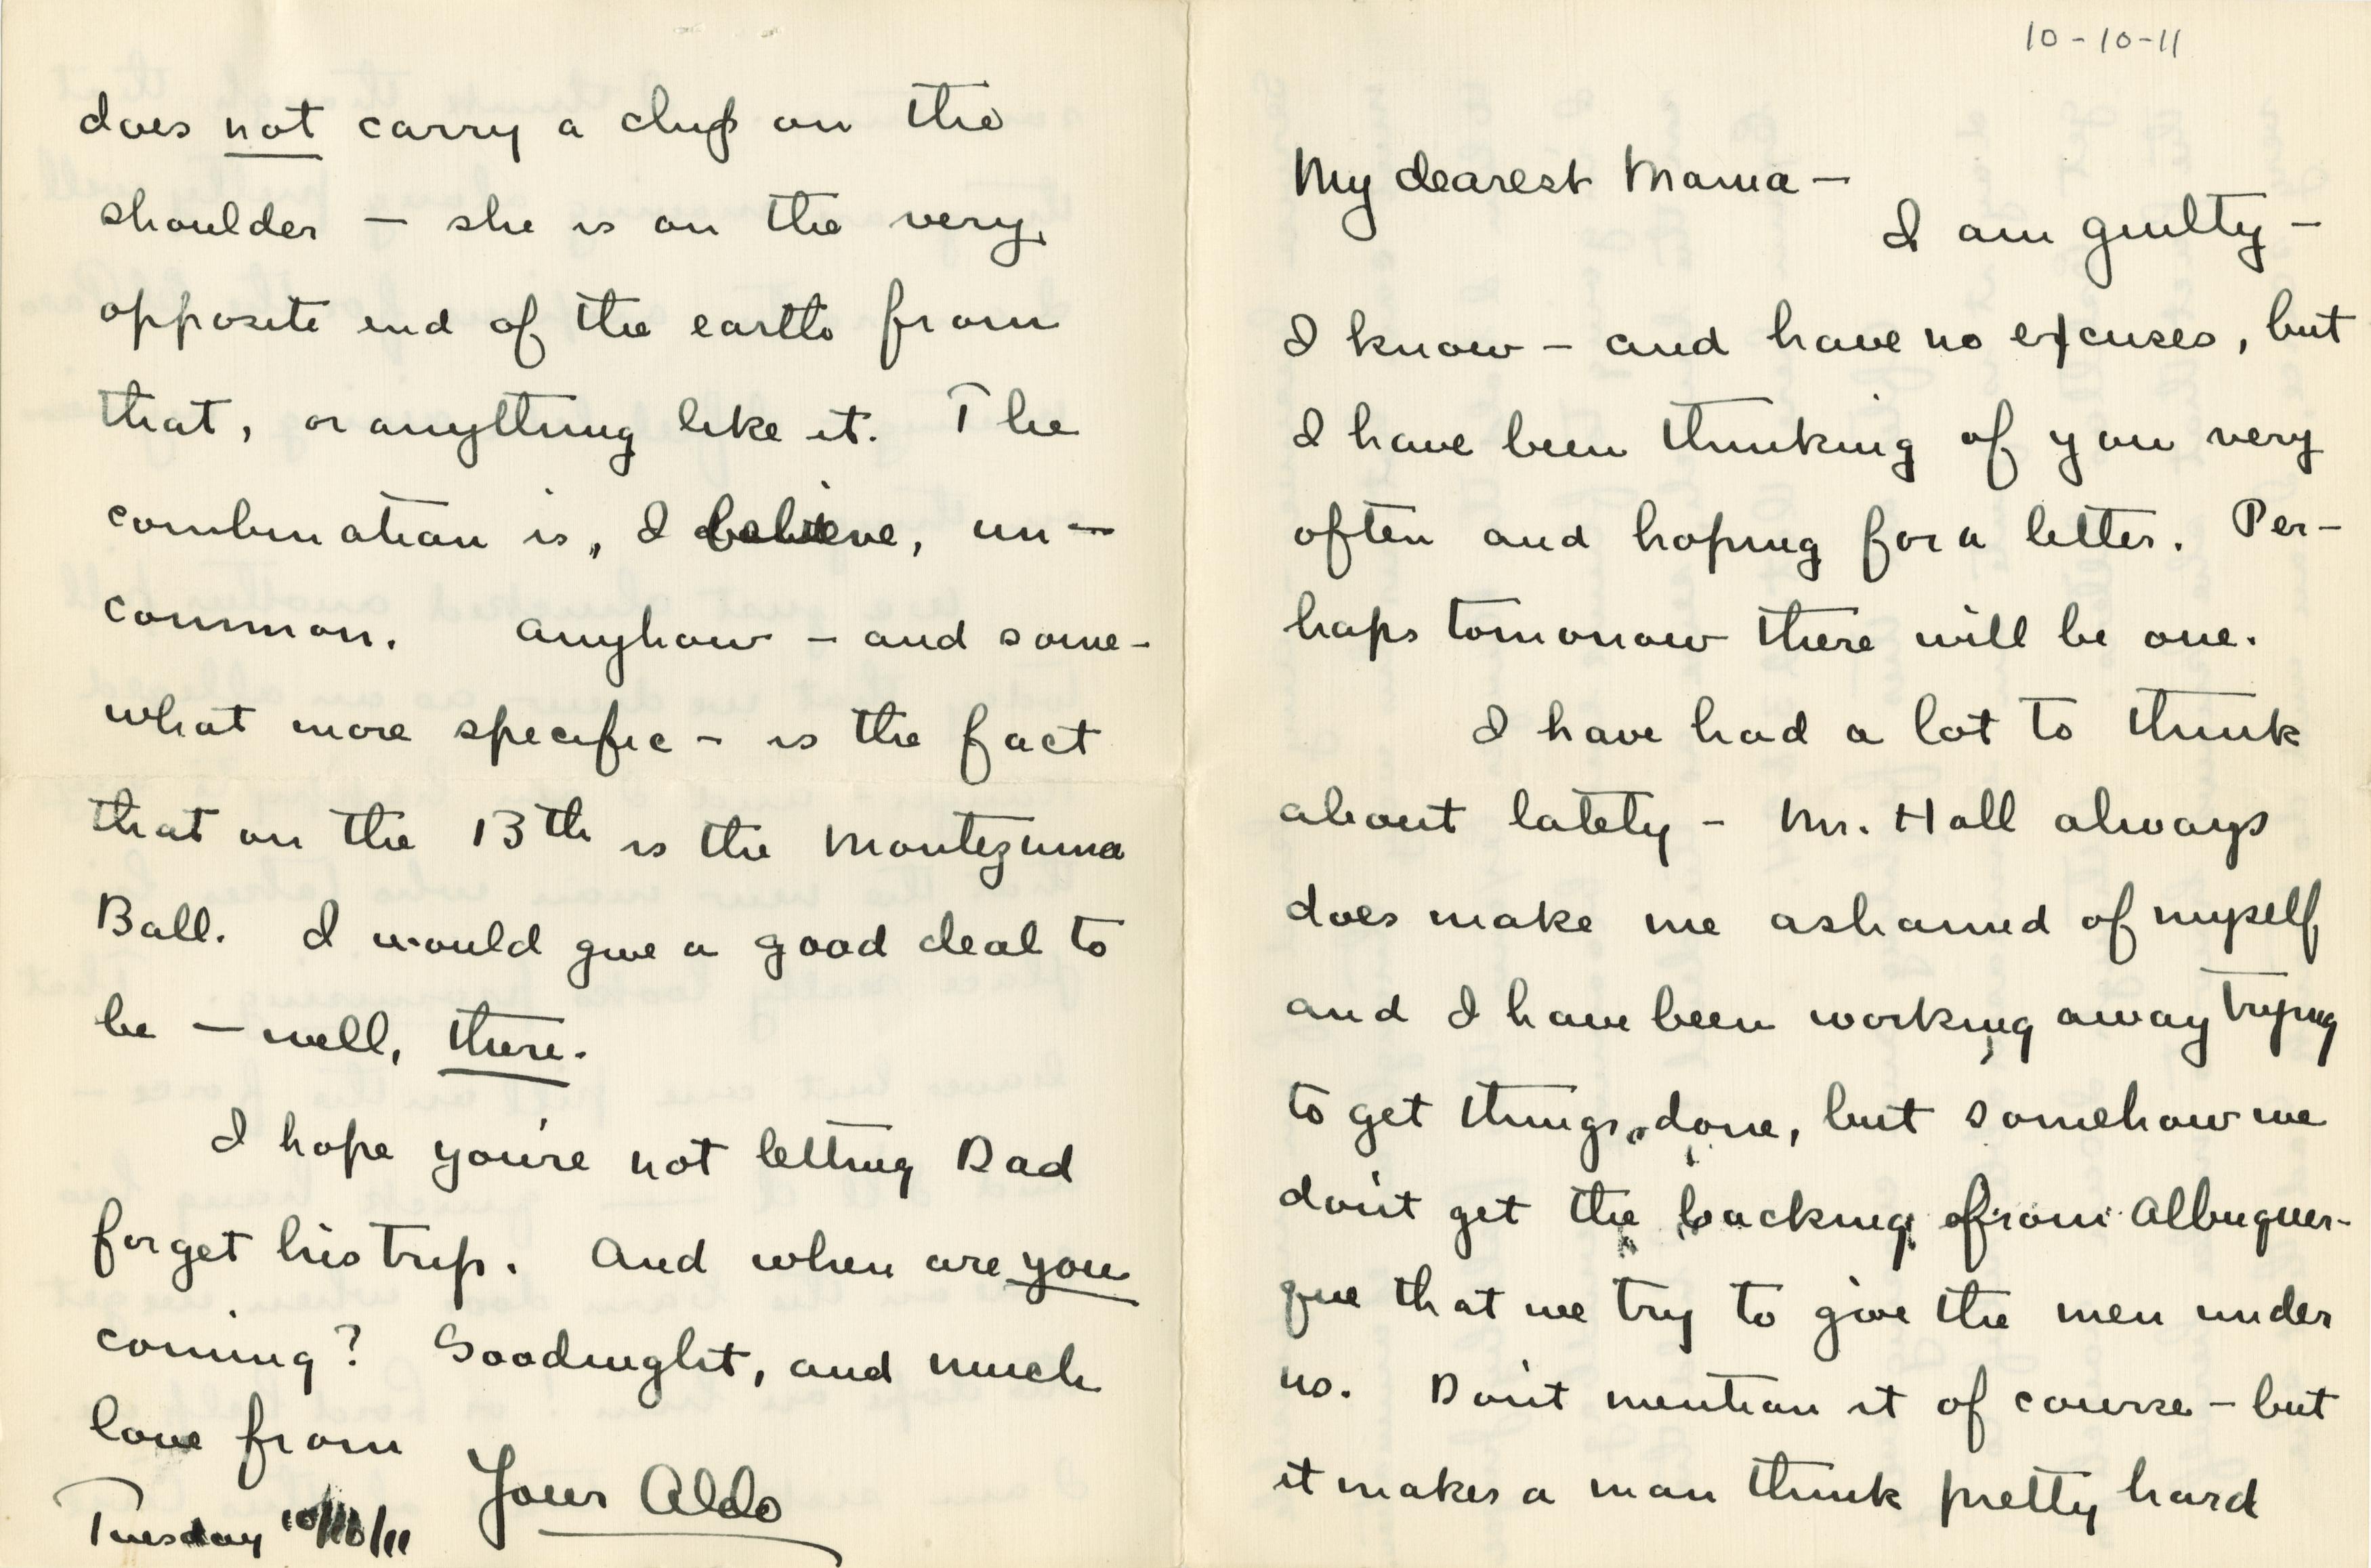 10-10-11
My dearest Mama —
I am guilty —
I know — and have no excuses, but
I have been thinking of you very
often and hoping for a letter. Per-
haps tomorrow there will be one.
I have had a lot to think
about lately — Mr. Hall always
does make me ashamed of myself
and I have been working away trying
to get things done, but somehow we
don't get the backing from Albuquer-
que that we try to give the men under
us. Don't mention it of course — but
it makes a man think pretty hard
does not carry a chip on the
shoulder — she is on the very
opposite end of the earth from
that, or anything like it. The
combination is, I believe, un-
common. Anyhow — and some-
what more specific — is the fact
that on the 13th is the Montezuma
Ball. I would give a good deal to
be — well, there.
I hope you're not letting Dad
forget his trip. And when are you
coming? Goodnight, and much
love from
Your Aldo
Tuesday 10/10/11